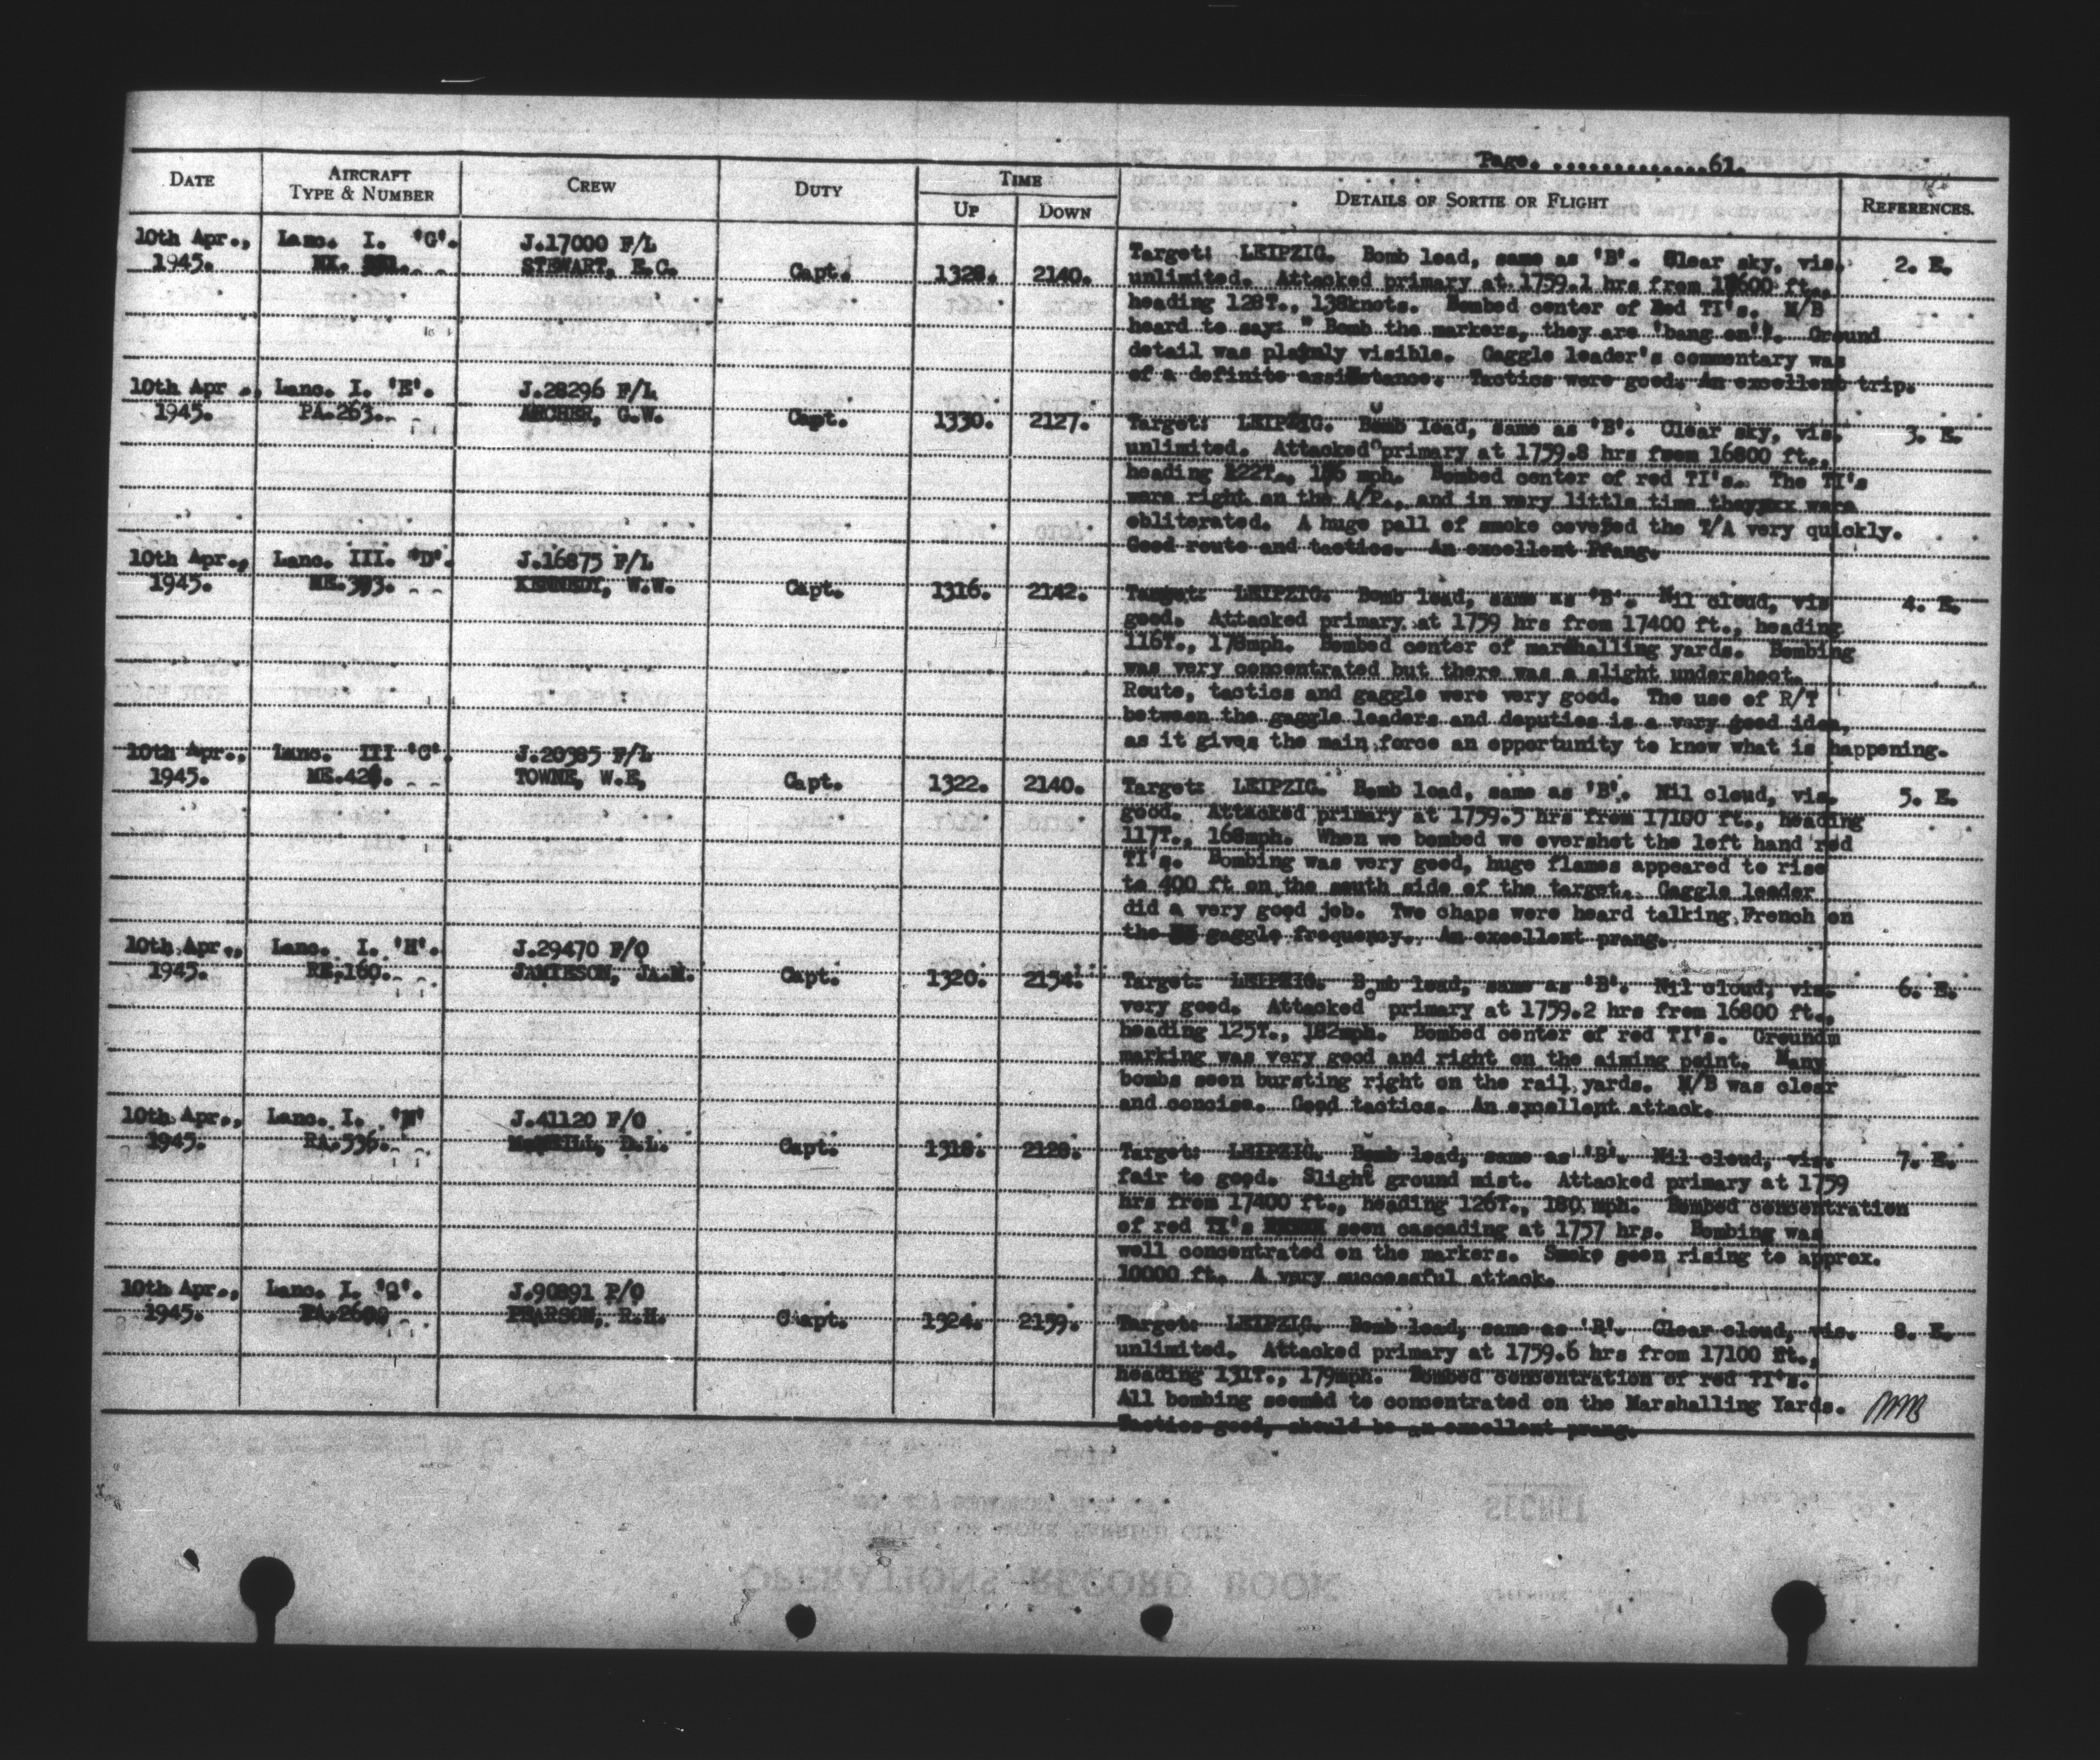 Page. ..............61.
DATE
AIRCRAFT
TYPE & NUMBER
CREW
DUTY
TIME
UP
DOWN
DETAILS OF SORTIE OR FLIGHT
REFERENCES.
10th Apr.,
1945.
Lanc. I. 'G'.
NX.
J.17000 F/L
STEWART, E.C.
Capt.
1328.
2140.
Target: LEIPZIG. Bomb load, same as 'B'. Clear sky, vis.
unlimited. Attacked primary at 1759.1 hrs from ft.,
heading 128T., 138knots. Bombed center of Red TI's. M/B
heard to say: " Bomb the markers, they are 'bang on'". Ground
detail was plainly visible. Gaggle leader's commentary was
of a definite assistance. Tactics were good. An excellent trip.
2. E.
10th Apr .,
1945.
Lanc. I. 'E'.
PA.263.
J.28296 F/L
ARCHER, G.W.
Capt.
1330.
2127.
Target: LEIPZIG. Bomb load, same as 'B'. Clear sky, vis.
unlimited. Attacked primary at 1759.8 hrs from 16800 ft.,
heading 122T., mph. Bombed center of red TI's. The TI's
were right on the A/P., and in very little time theyyxx were
obliterated. A huge pall of smoke covered the T/A very quickly.
Good route and tactics. An excellent Prang.
3. E.
10th Apr.,
1945.
Lanc. III. 'D'.
ME.393.
J.16875 F/L
KENNEDY, W.W.
Capt.
1316.
2142.
Target: LEIPZIG. Bomb load, same as 'B'. Nil cloud, vis
good. Attacked primary at 1759 hrs from 17400 ft., heading
116T., 178mph. Bombed center of marshalling yards. Bombing
was very concentrated but there was a slight undershoot.
Route, tactics and gaggle were very good. The use of R/T
between the gaggle leaders and deputies is a very good idea,
as it gives the main force an opportunity to know what is happening.
4. E.
10th Apr.,
1945.
Lanc. III 'C'
J.20385 F/L
TOWNE, W.E,
Capt.
1322.
2140.
Target: LEIPZIG. Bomb load, same as 'B'. Nil cloud, vis.
good. Attacked primary at 1759.5 hrs from 17100 ft., heading
117T., 168mph. When we bombed we overshot the left hand red
TI's. Bombing was very good, huge flames appeared to rise
to 400 ft on the south side of the target. Gaggle leader
did a very good job. Two chaps were heard talking French on
the gaggle frequency. An excellent prang.
5. E.
10th Apr.,
1945.
Lanc. I. 'H'.
RE.160.
J.29470 F/O
JAMIESON, JA.M.
Capt.
1320.
2154.
Target: LEIPZIG. Bomb load, same as 'B'. Nil cloud, vis.
very good. Attacked primary at 1759.2 hrs from 16800 ft.,
heading 125T., 182mph. Bombed center of red TI's. Groundm
marking was very good and right on the aiming point. Many
bombs seen bursting right on the rail yards. M/B was clear
and concise. Good tactics. An excellent attack.
6. E.
10th Apr.,
1945.
Lanc. I. 'N'
RA.536.
J.41120 F/O
McNEILL, D.L.
Capt.
1318.
2128.
Target: LEIPZIG. Bomb load, same as 'B'. Nil cloud, vis.
fair to good. Slight ground mist. Attacked primary at 1759
hrs from 17400 ft., heading 126T., 180 mph. Bombed concentration
of red TI's seen cascading at 1757 hrs. Bombing was
well concentrated on the markers. Smoke seen rising to approx.
10000 ft. A very successful attack.
7. E.
10th Apr.,
1945.
Lanc. I. 'Q'.
J.90891 P/O
PEARSON, R.H.
Capt.
1324.
2159.
Target: LEIPZIG. Bomb load, same as 'B'. Clear cloud, vis.
unlimited. Attacked primary at 1759.6 hrs from 17100 ft.,
heading 131T., 179mph. Bombed concentration of red TI's.
All bombing seemed to concentrated on the Marshalling Yards.
Tactics good, should be an excellent prang.
8. E.